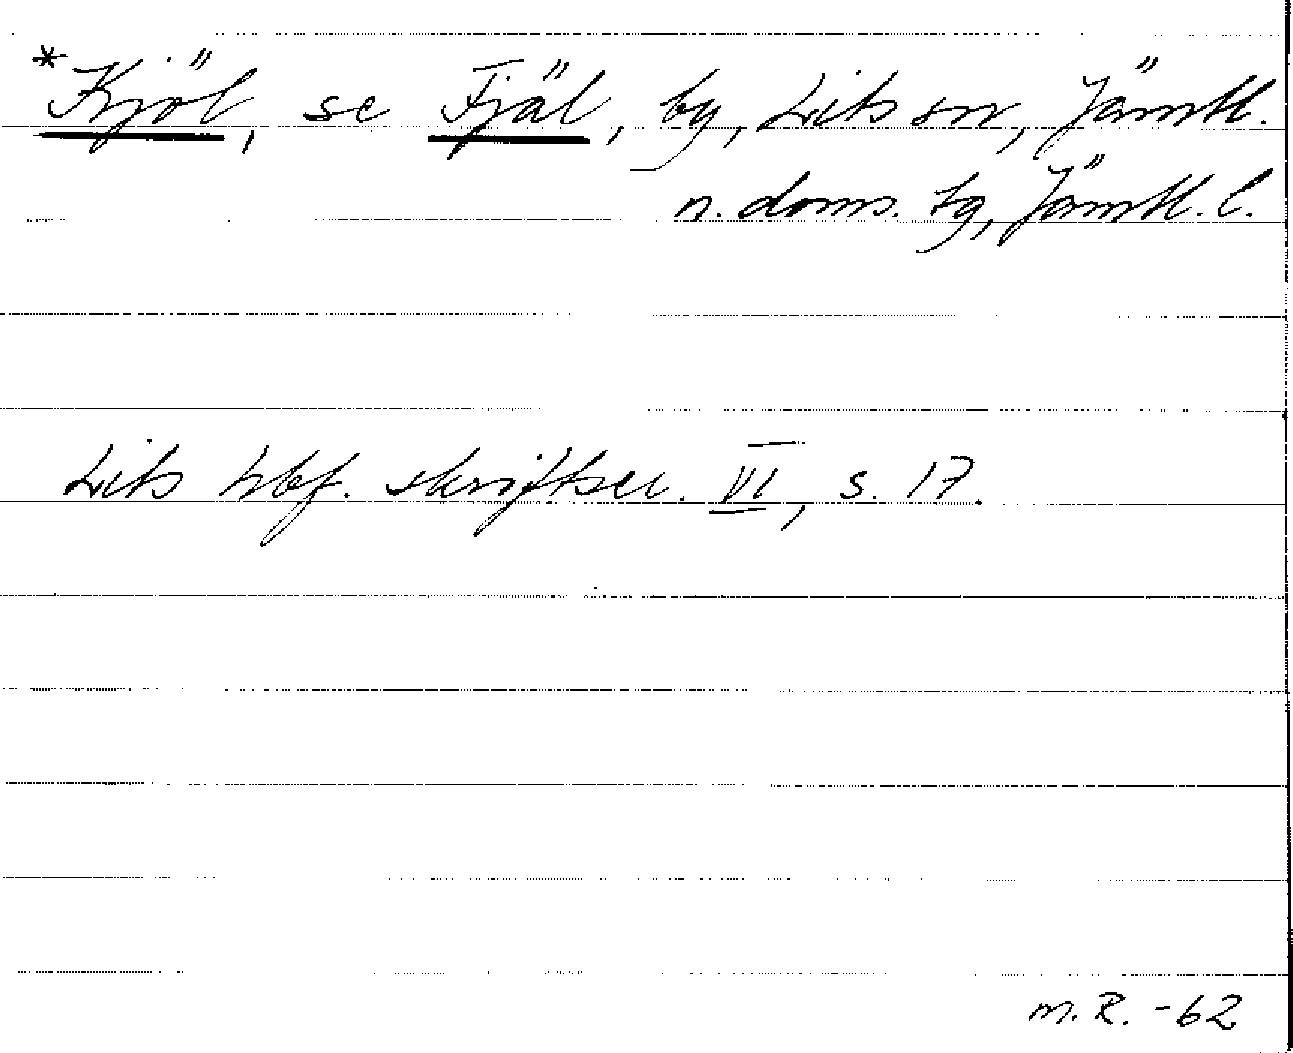 *Kjöl, se Fjäl, by, Lits sn, Jämtl.
n. doms. tg, Jämtl. l.
Lits hbf. skriftser. VI, s. 17.
M. R. -62